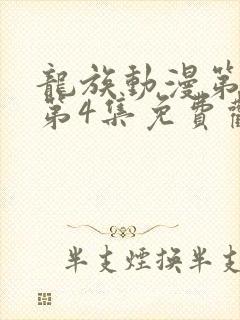 龍族動漫第
第4集免費
半支煙換半支